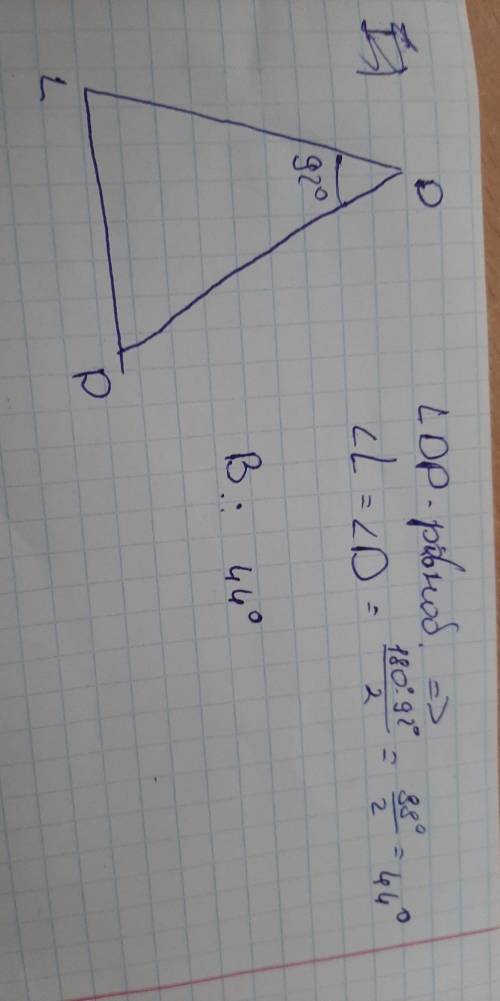 L
D
92°
D
LDP - рівноб. =>
∠L = ∠D = 180°-92°/2 = 88°/2 = 44°
В.: 44°